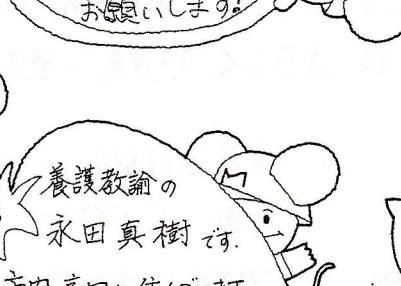 お願いします!
養護教諭の
永田真樹です.
M